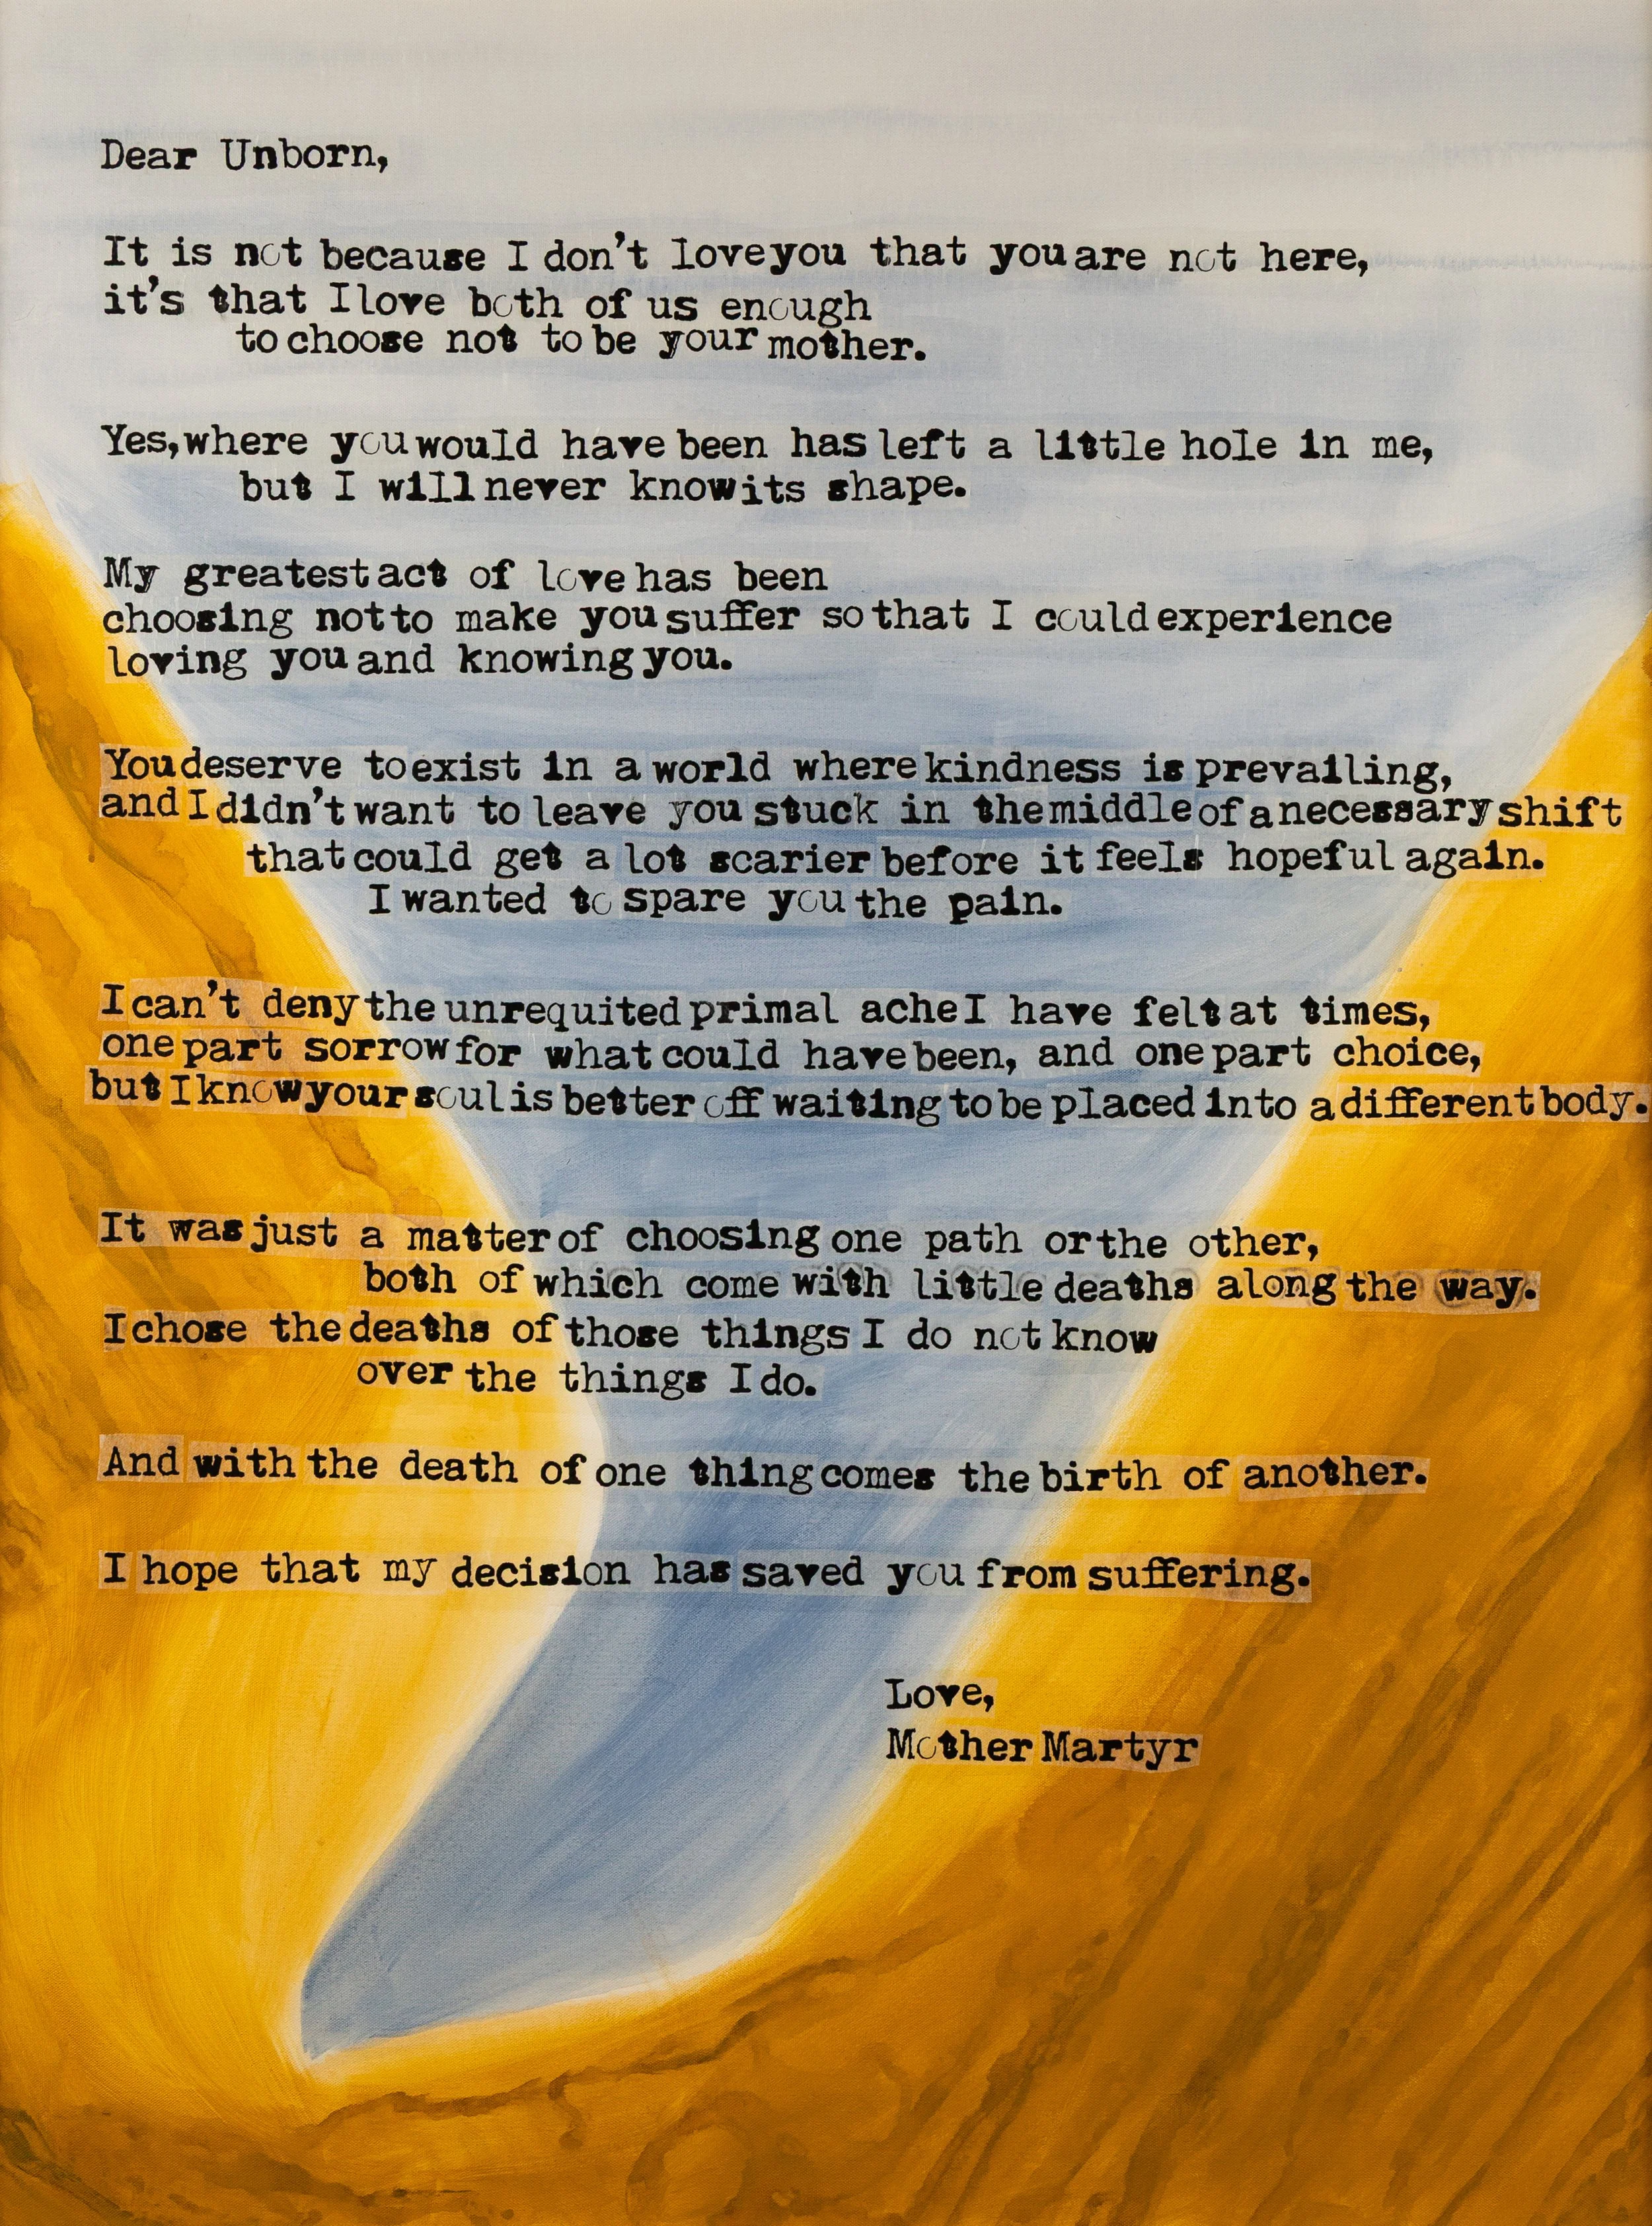 Dear Unborn,
It is not because I don't love you that you are not here,
it's that I love both of us enough
to choose not to be your mother.
Yes, where you would have been has left a little hole in me,
but I will never know its shape.
My greatest act of love has been
choosing not to make you suffer so that I could experience
loving you and knowing you.
You deserve to exist in a world where kindness is prevailing,
and I didn't want to leave you stuck in the middle of a necessary shift
that could get a lot scarier before it feels hopeful again.
I wanted to spare you the pain.
I can't deny the unrequited primal ache I have felt at times,
one part sorrow for what could have been, and one part choice,
but I know your soul is better off waiting to be placed into a different body.
It was just a matter of choosing one path or the other,
both of which come with little deaths along the way.
I chose the deaths of those things I do not know
over the things I do.
And with the death of one thing comes the birth of another.
I hope that my decision has saved you from suffering.
Love,
Mother Martyr